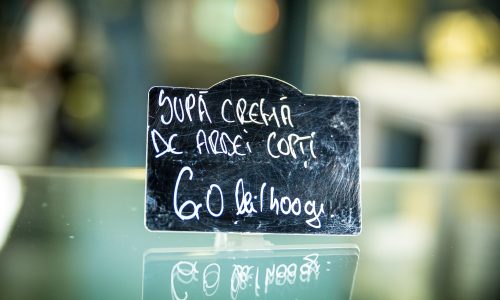 SUPĂ CREMĂ
DE ARDEI COPȚI
60 lei/400g